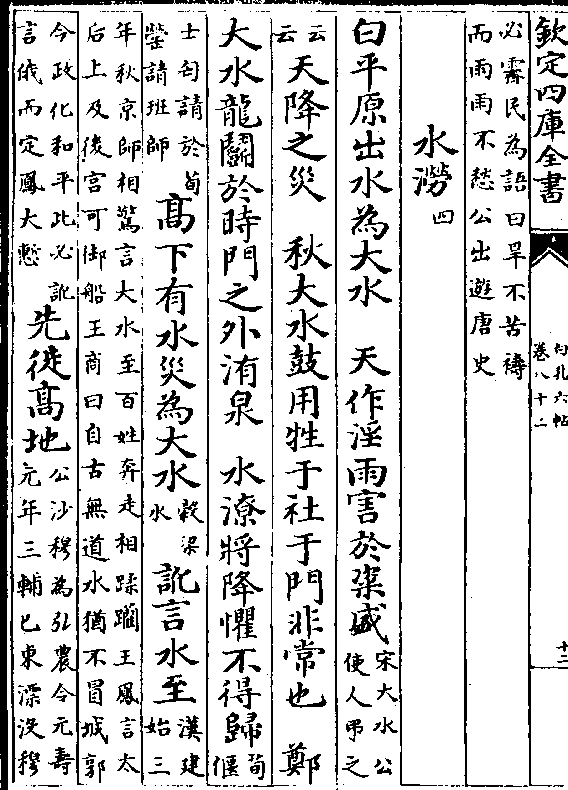 欽定四庫全書
白孔六帖
卷八十二
十三
必霈民為語曰旱不苦禱
而雨雨不愁公出遊唐史
水澇四
曰平原出水為大水 天作淫雨害於粢盛宋大水公使人弔之
云云天降之災 秋大水鼓用牲于社于門非常也 鄭
大水龍鬬於時門之外洧泉 水潦將降懼不得歸荀偃
士匄請於荀罃請班師高下有水災為大水穀梁水訛言水至漢建始三
年秋京師相驚言大水至百姓奔走相蹂躪王鳳言太
后上及後宮可御船王商曰自古無道水猶不冒城郭
今政化和平此必訛言俄而定鳳大慙先徙高地公沙穆為弘農令元壽元年三輔已東漂沒穆